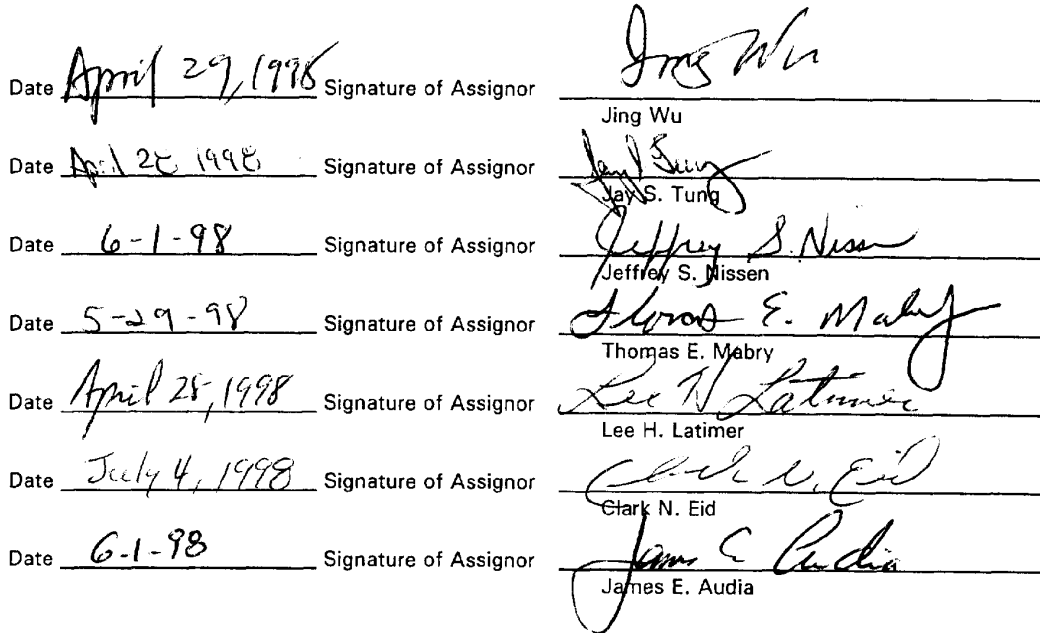 Date April 29, 1998 Signature of Assignor Jing Wu
Jing Wu
Date April 28 1998 Signature of Assignor Jay S. Tung
Jay S. Tung
Date 6-1-98 Signature of Assignor Jeffrey S. Nissen
Jeffrey S. Nissen
Date 5-29-98 Signature of Assignor Thomas E. Mabry
Thomas E. Mabry
Date April 28, 1998 Signature of Assignor Lee H. Latimer
Lee H. Latimer
Date July 4, 1998 Signature of Assignor Clark N. Eid
Clark N. Eid
Date 6-1-98 Signature of Assignor James E. Audia
James E. Audia